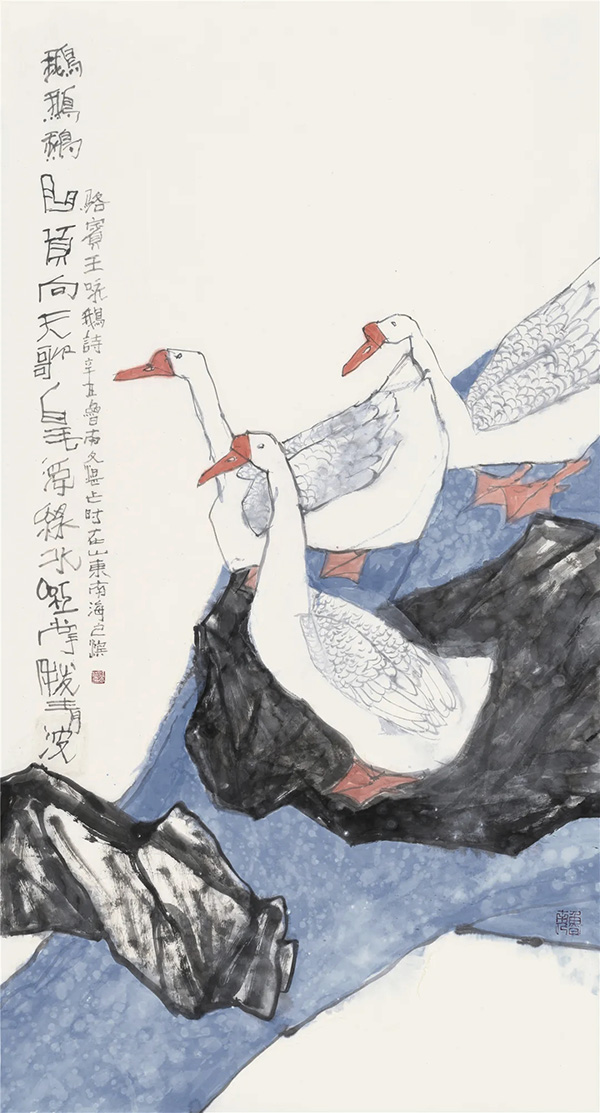 鵝鵝鵝曲項向天歌白毛浮綠水紅掌撥清波
駱賓王咏鵝詩辛丑魯南时在山東南海之濱